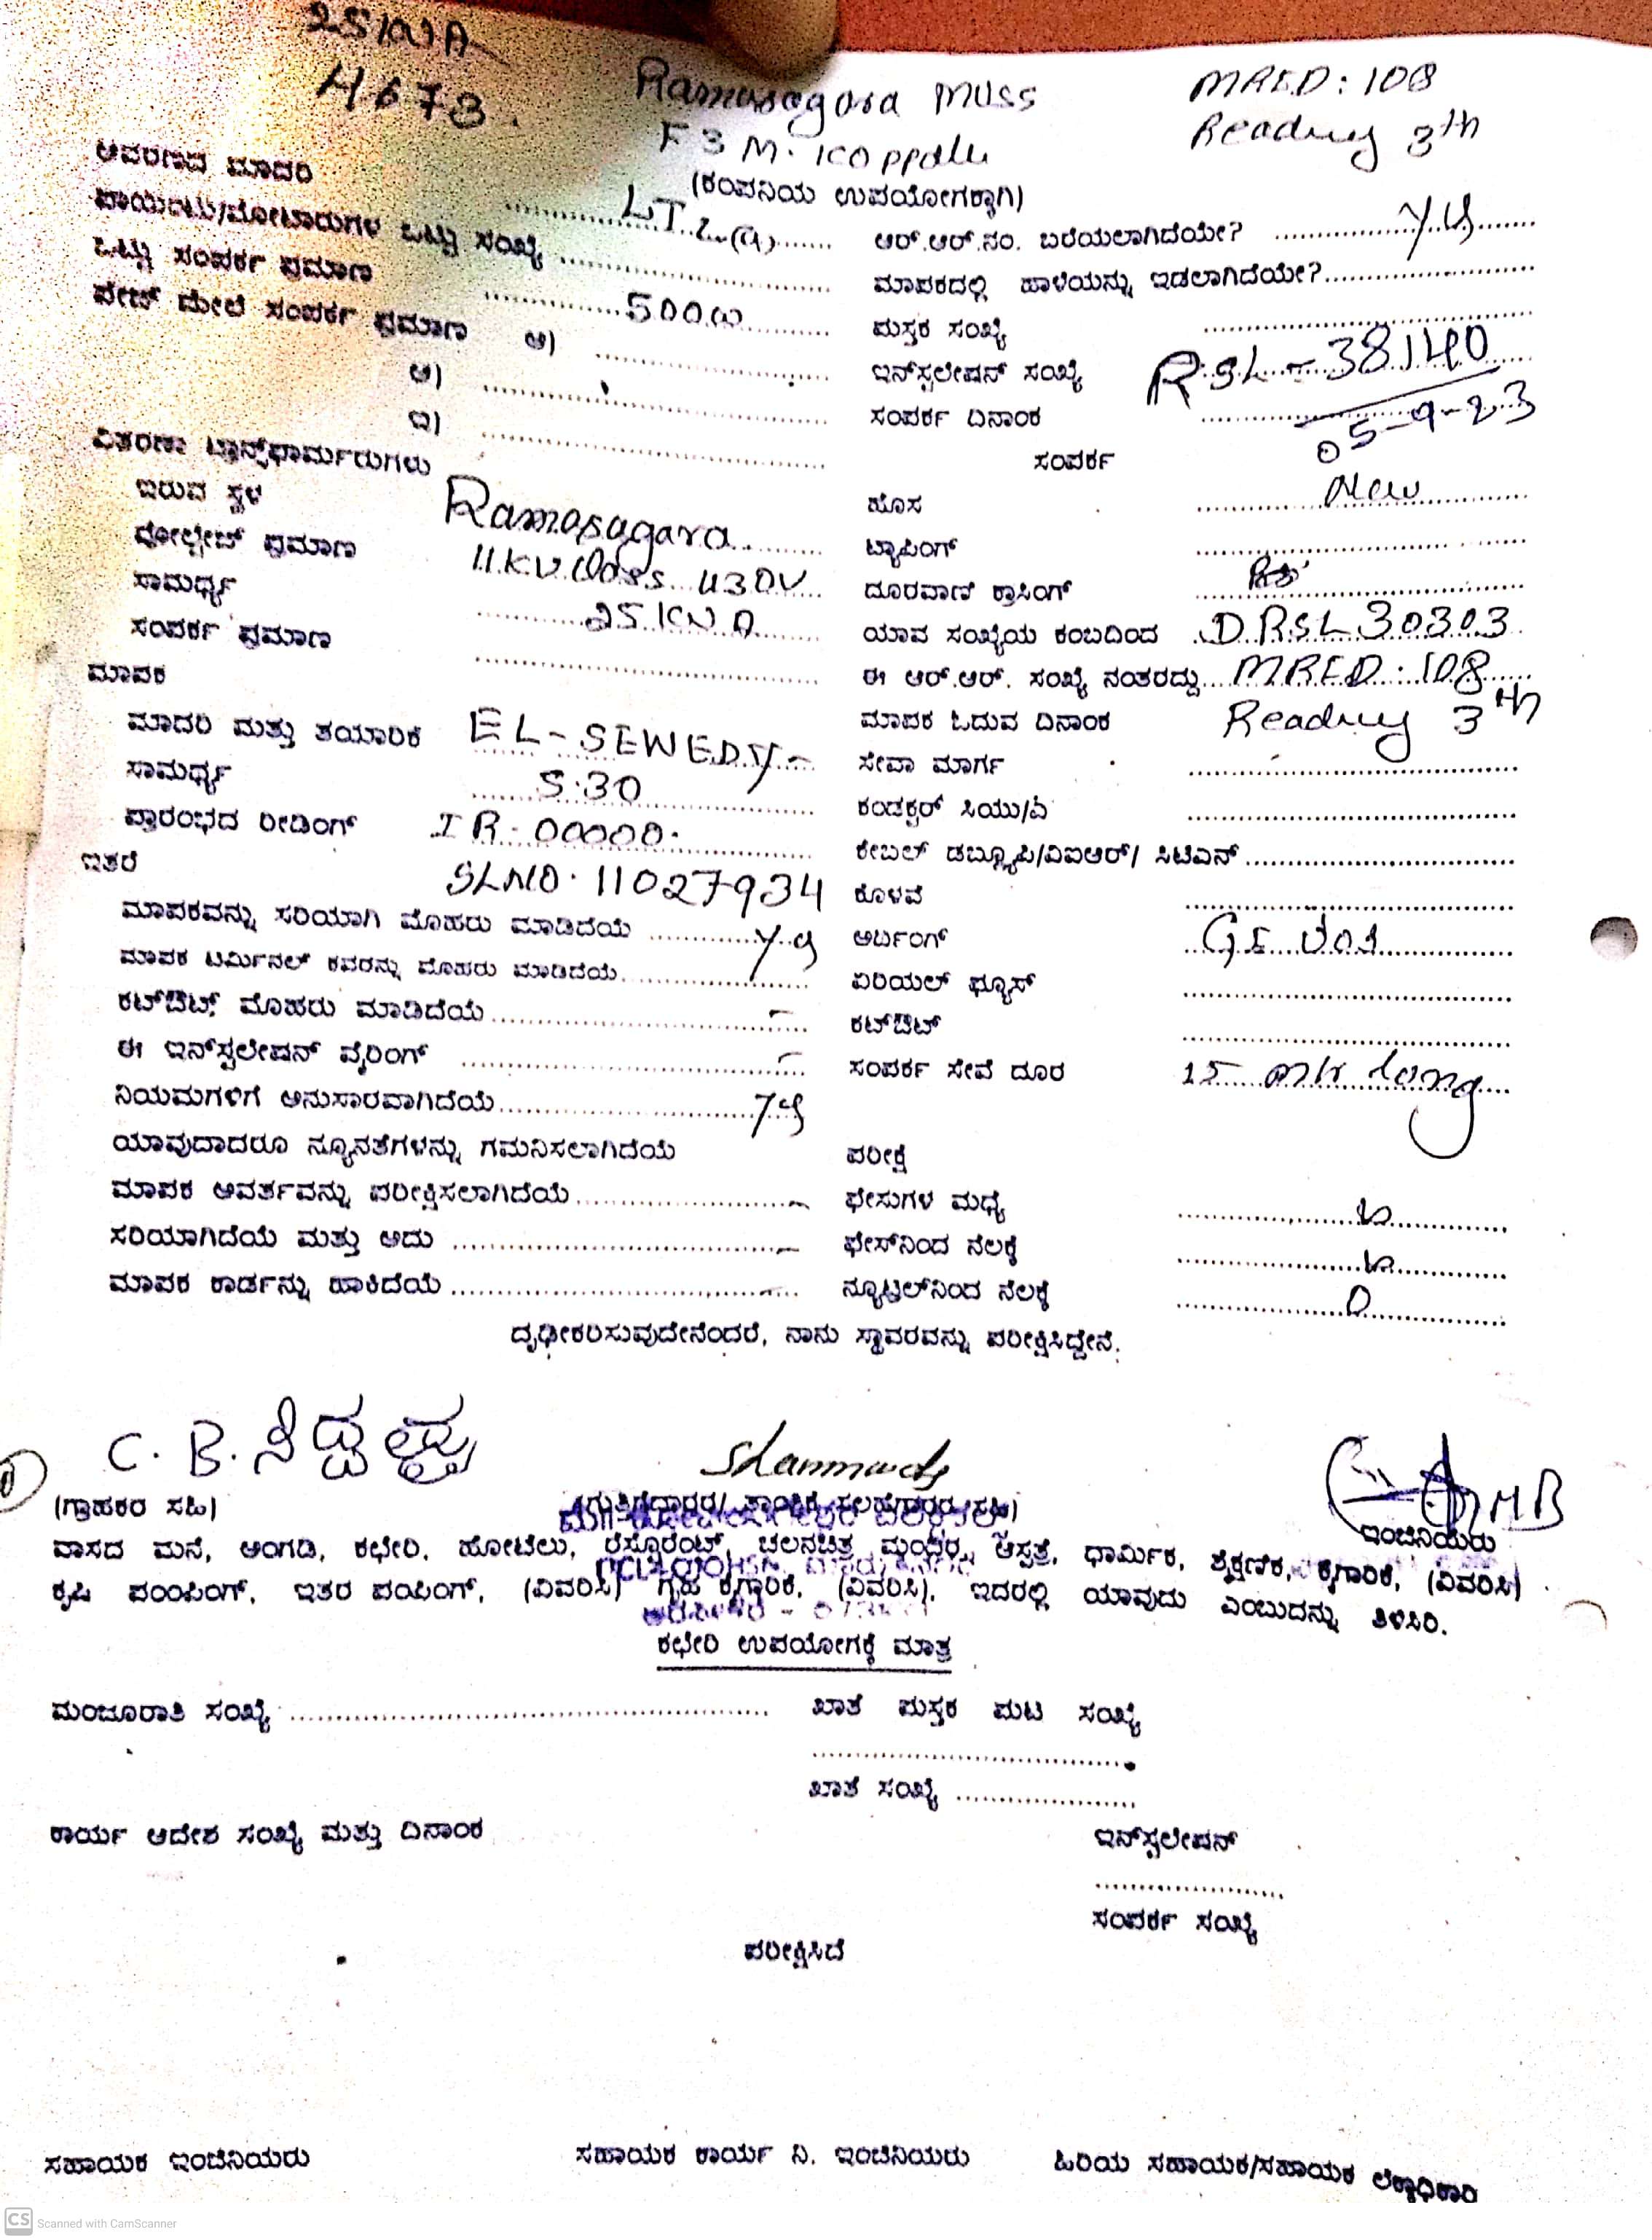 25KVA
4678.
Ramasagara MUSS
MRED: 108
F3 M. Koppalu
Reading 3th
ಆವರಣದ ಮಾದರಿ
(ಕಂಪನಿಯ ಉಪಯೋಗಕ್ಕಾಗಿ)
ಪಾಯಿಂಟು/ಮೋಟಾರುಗಳ ಒಟ್ಟು ಸಂಖ್ಯೆ LT2(a)
ಆರ್.ಆರ್.ನಂ. ಬರೆಯಲಾಗಿದೆಯೇ? yes
ಒಟ್ಟು ಸಂಪರ್ಕ ಪ್ರಮಾಣ 500w
ಮಾಪಕದಲ್ಲಿ ಹಾಳೆಯನ್ನು ಇಡಲಾಗಿದೆಯೇ?
ಪೇಜ್ ಮೇಲೆ ಸಂಪರ್ಕ ಪ್ರಮಾಣ ಅ)
ಪುಸ್ತಕ ಸಂಖ್ಯೆ
ಆ)
ಇನ್‌ಸ್ಟಲೇಷನ್ ಸಂಖ್ಯೆ RSL-38140
ಇ)
ಸಂಪರ್ಕ ದಿನಾಂಕ 05-9-23
ವಿತರಣಾ ಟ್ರಾನ್ಸ್‌ಫಾರ್ಮರುಗಳು
ಸಂಪರ್ಕ
ಇರುವ ಸ್ಥಳ Ramasagara
ಹೊಸ New
ವೋಲ್ಟೇಜ್ ಪ್ರಮಾಣ 11KV 430V
ಟ್ಯಾಪಿಂಗ್
ಸಾಮರ್ಥ್ಯ 25KVA
ದೂರವಾಣಿ ಕ್ರಾಸಿಂಗ್
ಸಂಪರ್ಕ ಪ್ರಮಾಣ
ಯಾವ ಸಂಖ್ಯೆಯ ಕಂಬದಿಂದ DRSL30303
ಮಾಪಕ
ಈ ಆರ್.ಆರ್. ಸಂಖ್ಯೆ ನಂತರದ್ದು MRED:108
ಮಾದರಿ ಮತ್ತು ತಯಾರಿಕೆ EL-SEWEDY-
ಮಾಪಕ ಓದುವ ದಿನಾಂಕ Reading 3th
ಸಾಮರ್ಥ್ಯ 5:30
ಸೇವಾ ಮಾರ್ಗ
ಪ್ರಾರಂಭದ ರೀಡಿಂಗ್ IR-00000.
ಕಂಡಕ್ಟರ್ ಸಿಯು/ಎ
ಇತರೆ SLNO. 11027934
ಕೇಬಲ್ ಡಬ್ಲ್ಯೂಪಿ/ವಿಐಆರ್/ ಸಿಟಿಎನ್
ಕೊಳವೆ
ಮಾಪಕವನ್ನು ಸರಿಯಾಗಿ ಮೊಹರು ಮಾಡಿದೆಯೆ yes
ಅರ್ಥಿಂಗ್
ಮಾಪಕ ಟರ್ಮಿನಲ್ ಕವರನ್ನು ಮೊಹರು ಮಾಡಿದೆಯೆ
ಏರಿಯಲ್ ಫ್ಯೂಸ್
ಕಟ್‌ಔಟ್ ಮೊಹರು ಮಾಡಿದೆಯೆ -
ಕಟ್‌ಔಟ್
ಈ ಇನ್‌ಸ್ಟಲೇಷನ್ ವೈರಿಂಗ್ -
ಸಂಪರ್ಕ ಸೇವೆ ದೂರ 15 mtr long
ನಿಯಮಗಳಿಗೆ ಅನುಸಾರವಾಗಿದೆಯೆ yes
ಯಾವುದಾದರೂ ನ್ಯೂನತೆಗಳನ್ನು ಗಮನಿಸಲಾಗಿದೆಯೆ
ಪರೀಕ್ಷೆ
ಮಾಪಕ ಆವರ್ತವನ್ನು ಪರೀಕ್ಷಿಸಲಾಗಿದೆಯೆ -
ಫೇಸುಗಳ ಮಧ್ಯೆ
ಸರಿಯಾಗಿದೆಯೆ ಮತ್ತು ಅದು -
ಫೇಸ್‌ನಿಂದ ನೆಲಕ್ಕೆ
ಮಾಪಕ ಕಾರ್ಡನ್ನು ಹಾಕಿದೆಯೆ -
ನ್ಯೂಟ್ರಲ್‌ನಿಂದ ನೆಲಕ್ಕೆ 0
ದೃಢೀಕರಿಸುವುದೇನೆಂದರೆ, ನಾನು ಸ್ಥಾವರವನ್ನು ಪರೀಕ್ಷಿಸಿದ್ದೇನೆ.
C. B. ಸಿದ್ದಪ್ಪ
(ಗ್ರಾಹಕರ ಸಹಿ)
ಇಂಜಿನಿಯರು
ವಾಸದ ಮನೆ, ಅಂಗಡಿ, ಕಛೇರಿ, ಹೋಟೆಲು, ರೆಸ್ಟೊರೆಂಟ್, ಚಲನಚಿತ್ರ ಮಂದಿರ, ಆಸ್ಪತ್ರೆ, ಧಾರ್ಮಿಕ, ಶೈಕ್ಷಣಿಕ, ಕೈಗಾರಿಕೆ, (ವಿವರಿಸಿ)
ಕೃಷಿ ಪಂಪಿಂಗ್, ಇತರ ಪಂಪಿಂಗ್, (ವಿವರಿಸಿ) ಗೃಹ ಕೈಗಾರಿಕೆ, (ವಿವರಿಸಿ), ಇದರಲ್ಲಿ ಯಾವುದು ಎಂಬುದನ್ನು ತಿಳಿಸಿರಿ.
ಕಛೇರಿ ಉಪಯೋಗಕ್ಕೆ ಮಾತ್ರ
ಮಂಜೂರಾತಿ ಸಂಖ್ಯೆ
ಖಾತೆ ಪುಸ್ತಕ ಪುಟ ಸಂಖ್ಯೆ
ಖಾತೆ ಸಂಖ್ಯೆ
ಕಾರ್ಯ ಆದೇಶ ಸಂಖ್ಯೆ ಮತ್ತು ದಿನಾಂಕ
ಇನ್‌ಸ್ಟಲೇಷನ್
ಸಂಪರ್ಕ ಸಂಖ್ಯೆ
ಪರೀಕ್ಷಿಸಿದೆ
ಸಹಾಯಕ ಇಂಜಿನಿಯರು
ಸಹಾಯಕ ಕಾರ್ಯ ನಿ. ಇಂಜಿನಿಯರು
ಹಿರಿಯ ಸಹಾಯಕ/ಸಹಾಯಕ ಲೆಕ್ಕಾಧಿಕಾರಿ
CS Scanned with CamScanner